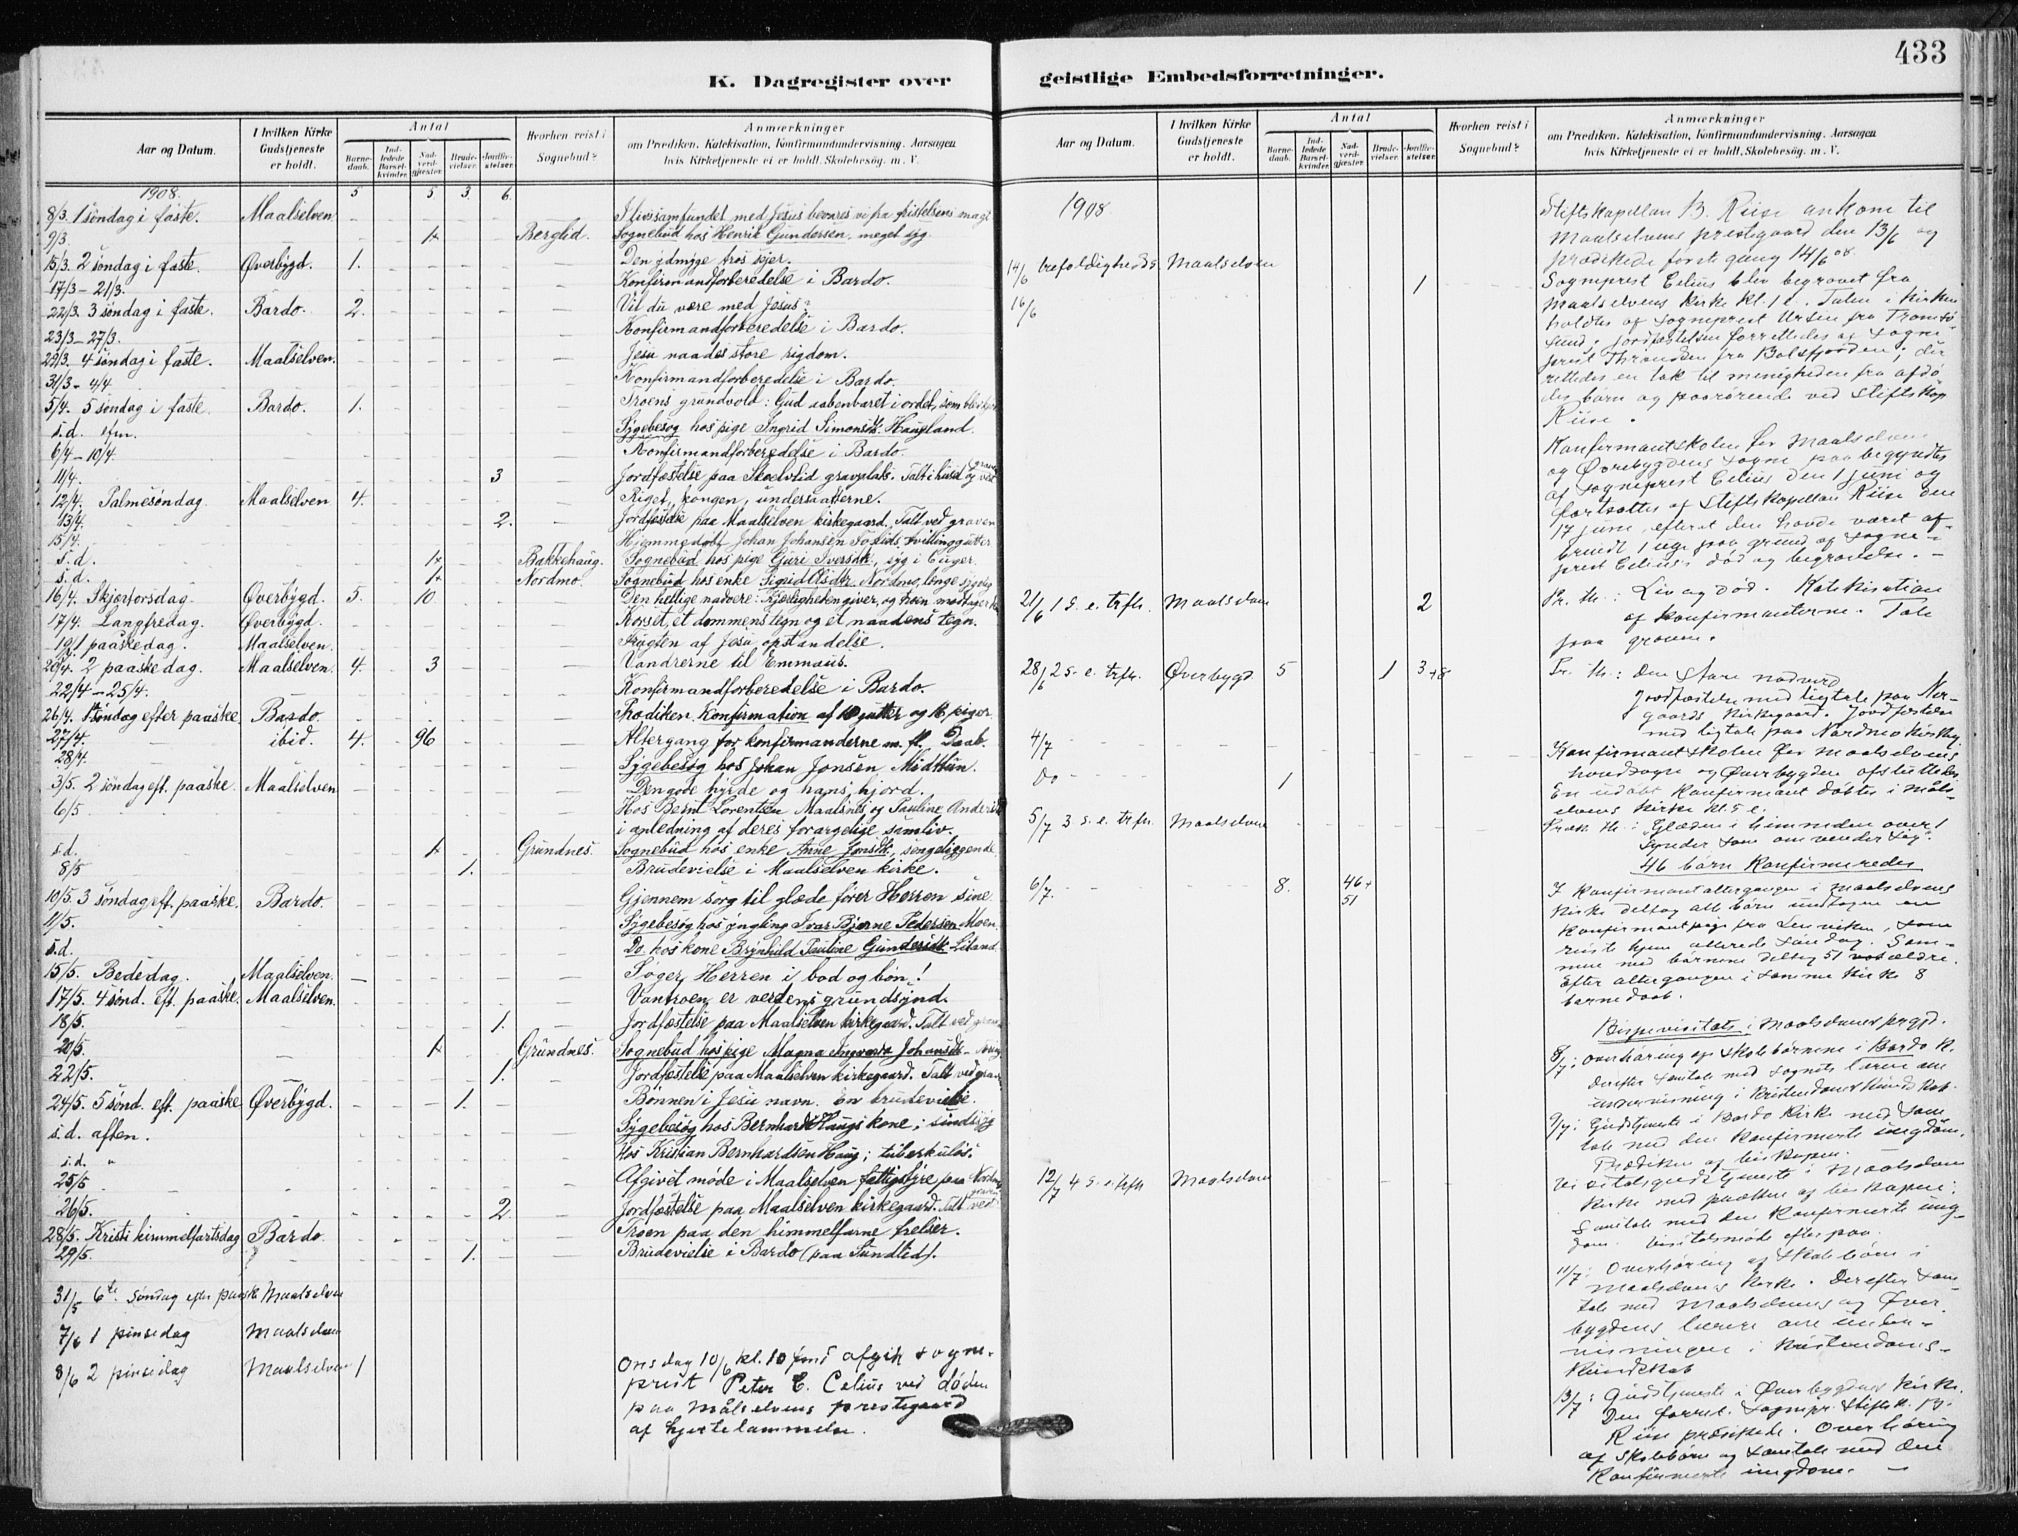 433
K. Dagregister over geistlige Embedsforretninger.
Aar og Datum. I hvilken Kirke Gudstjeneste er holdt. Antal Barnedaab. Indledede Barselkvinder. Nadverdgjæster. Brudevielser. Jordfæstelser. Hvorhen reist i Sognebud? Anmærkninger om Prædiken, Katekisation, Konfirmandundervisning, Aarsagen hvis Kirketjeneste ei er holdt, Skolebesøg, m. V.
1908. 5 5 3 6
8/3. 1 søndag i faste. Maalselven I livssamfundet med Jesus bevares vi fra fristelsens magt
9/3 1+ Berglid. Sognebud hos Henrik Gundersen, meget syg.
15/3. 2 søndag i faste. Øverbygd. 1. Den ydmyge tros seier.
17/3 – 21/3. Konfirmandforberedelse i Bardo.
22/3. 3 søndag i faste. Bardo. 2. Vil du være med Jesus?
23/3 – 27/3. Konfirmandforberedelse i Bardo.
29/3. 4 søndag i faste. Maalselven. Jesu naades store rigdom.
31/3 – 4/4 Konfirmandforberedelse i Bardo.
5/4. 5 søndag i faste. Bardo. 1. Troens grundvold: Gud aabenbaret i ordet, som blev
s.d. efm. Sygebesøg hos pige Ingrid Simonsdtr. Haugland.
6/4 – 10/4. Konfirmandforberedelse i Bardo.
11/4. 3 Jordfæstelse paa Skoelvlid gravplads. Talt i hused og ved graven
12/4. Palmesøndag Maalselven 4. Riget, kongen, undersaatterne.
13/4. 2. Jordfæstelse paa Maalselven kirkegaard. Talt ved graven
15/4. Hjemmedøbt Johan Johansen Foslids tvillinggutter
s.d. 1+ Bakkehaug. Sognebud hos pige Guri Iversdtr., syg i
s.d. 1+ Nordmo. Sognebud hos enke Sigrid Olsdtr. Nordmo, længe sygelig
16/4. Skjærtorsdag. Øverbygd. 5. 10 Den hellige nadvere: Kjærligheten giver, og troen modtager
17/4. Langfredag. Øverbygd. Korset, et dommens tegn og et naadens tegn.
19/4 1 paaskedag. Maalselven. Frugten af Jesu opstandelse.
20/4. 2 paaskedag. Maalselven. 4. 3 Vandrerne til Emmaus.
22/4 – 25/4. Konfirmandforberedelse i Bardo.
26/4. 1 søndag efter paaske. Bardo. Prædiken. Konfirmation af 10 gutter og 16 piger.
27/4. ibid. 4. 96 Altergang for konfirmanderne m. fl. Daab.
28/4. Sygebesøg hos Johan Jonsen Midthun.
3/5. 2 søndag eft. paaske. Maalselven Den gode hyrde og hans hjord.
6/5 Hos Bernt Lorentsen Maalsnes og Pauline
i anledning af deres forargelige samliv.
s.d. 1+ Grundnes. Sognebud hos enke Anne Jonsdtr., sengeliggende
8/5 1. Brudevielse i Maalselven kirke.
10/5. 3 søndag eft. paaske. Bardo. Gjennem sorg til glæde fører Herren sine
11/5. Sygebesøg hos yngling Ivar Bjarne Pedersen Moen
s.d. Do. hos kone Brynhild Pauline Gundersdtr. Liland
15/5. Bededag. Maalselven. Søger Herren i bod og bøn!
17/5. 4 sønd. eft. paaske. Maalselven. Vantroen er verdens grundsynd.
18/5. 1. Jordfæstelse paa Maalselven kirkegaard. Talt ved graven
20/5. 1+ Grundnes. Sognebud hos pige Magna Ingvarda Johansdtr.
22/5. 1. Jordfæstelse paa Maalselven kirkegaard. Talt ved graven
24/5. 5 sønd. eft. paaske Øverbygd. 1. Bønnen i Jesu navn. En brudevielse.
s.d. aften. Sygebesøg hos Bernhard Haugs kone; sindssyg
s.d. " Hos Kristian Bernhardsen Haug; tuberkuløs.
25/5 Afgivet møde i Maalselven fattigstyre paa
26/5. 2 Jordfæstelse paa Maalselven kirkegaard. Talt ved graven
28/5. Kristi himmelfartsdag Bardo. Troen paa den himmelfarne frelser.
29/5. 1. Brudevielse i Bardo (paa Sundlid).
31/5 6te søndag efter paaske Maalselven
7/6 1 pinsedag Maalselven
8/6 2 pinsedag Maalselven 1
Onsdag 10/6 kl. 10 fmd afgik sogne-
prest Peter C. Celius ved døden
paa Målselvens prestegaard
af hjertelammelse.
Aar og Datum. I hvilken Kirke Gudstjeneste er holdt. Antal Barnedaab. Indledede Barselkvinder. Nadverdgjæster. Brudevielser. Jordfæstelser. Hvorhen reist i Sognebud? Anmærkninger om Prædiken, Katekisation, Konfirmandundervisning, Aarsagen hvis Kirketjeneste ei er holdt, Skolebesøg, m. V.
1908
Stiftskapellan B. Riise ankom til
Maalselvens prestegaard den 13/6 og
prædikede første gang 14/6 08.
14/6 trefoldigheds. Maalselven
16/6 1 Sogneprest Celius blev begravet fra
Maalselvens kirke kl. 12. Talen i kirken
holdtes af sogneprest Ursen fra Tromsø-
sund, jordfæstelsen forrettedes af sogne-
prest Throndsen fra Balsfjorden; der
rettedes en tak til menigheden fra afdø-
des børn og paarørende ved Stiftskap.
Riise.
Konfirmantskolen for Maalselven
og Øverbygdens sogne paabegyndtes
af sogneprest Celius den 1 juni og
fortsattes af Stiftskapellan Riise den
17 juni, efterat den havde været af-
brudt 1 uge paa grund af sogne-
prest Celius's død og begravelse. –
21/6 1 s. e. trefh. Maalselven 2 Pr. th.: Liv og død. Katekisation
af konfirmanterne. Tale
paa graven.
28/6 2 s. e. trfh. Øverbygd 5 1 3+8 Pr. th.: Den store nadverd
Jordfæstelse med ligtale paa Nor-
gaards kirkegaard. Jordfæstelse
med ligtale paa Nordmo kirkeg.
4/7 Konfirmantskolen for Maalselvens
hovedsogn og Øverbygden afsluttedes.
Do 1 En udøbt konfirmant døbtes i Mål-
selvens kirke kl. 5 e.
5/7 3 s. e. trfh. Maalselven Præd. th.: Glæden i himmelen over 1
synder som omvender sig.
46 børn konfirmeredes
6/7. 8. 46+ 51 I konfirmantaltergangen i Maalselvens
kirke deltog alle børn undtagen en
konfirmantpige fra Lenviken, som
reiste hjem allerede søndag. Sam-
men med børnene deltog 51 ældre.
Efter altergangen i samme kirke 8
barnedaab.
Bispevisitats i Maalselvens prgjd.
8/7: Overhøring af skolebørnene i Bardo k.
Derefter samtale med sognets lærere om
undervisning i kristendomskundskab.
9/7: Gudstjeneste i Bardo kirke med sam-
tale med den konfirmerte ungdom.
Prædiken af biskopen.
12/7 4 s. e. trfh. Maalselven Visitatsgudstjeneste i Maalselven
kirke med prædken af biskopen;
Samtale med den konfirmerte ung-
dom. Visitatsmøde efterpaa.
11/7: Overhøring af skolebørn i
Maalselvens kirke. Derefter sam-
tale med Maalselvens og Øver-
bygdens lærere om under-
visningen i kristendoms-
kundskab
13/7: Gudstjeneste i Øverbygdens kirke.
Den forret. sognepr. Stiftsk. B.
Riise prædikede. Overhøring
af skolebørn og samtale med den
konfirmerte ungdom. –